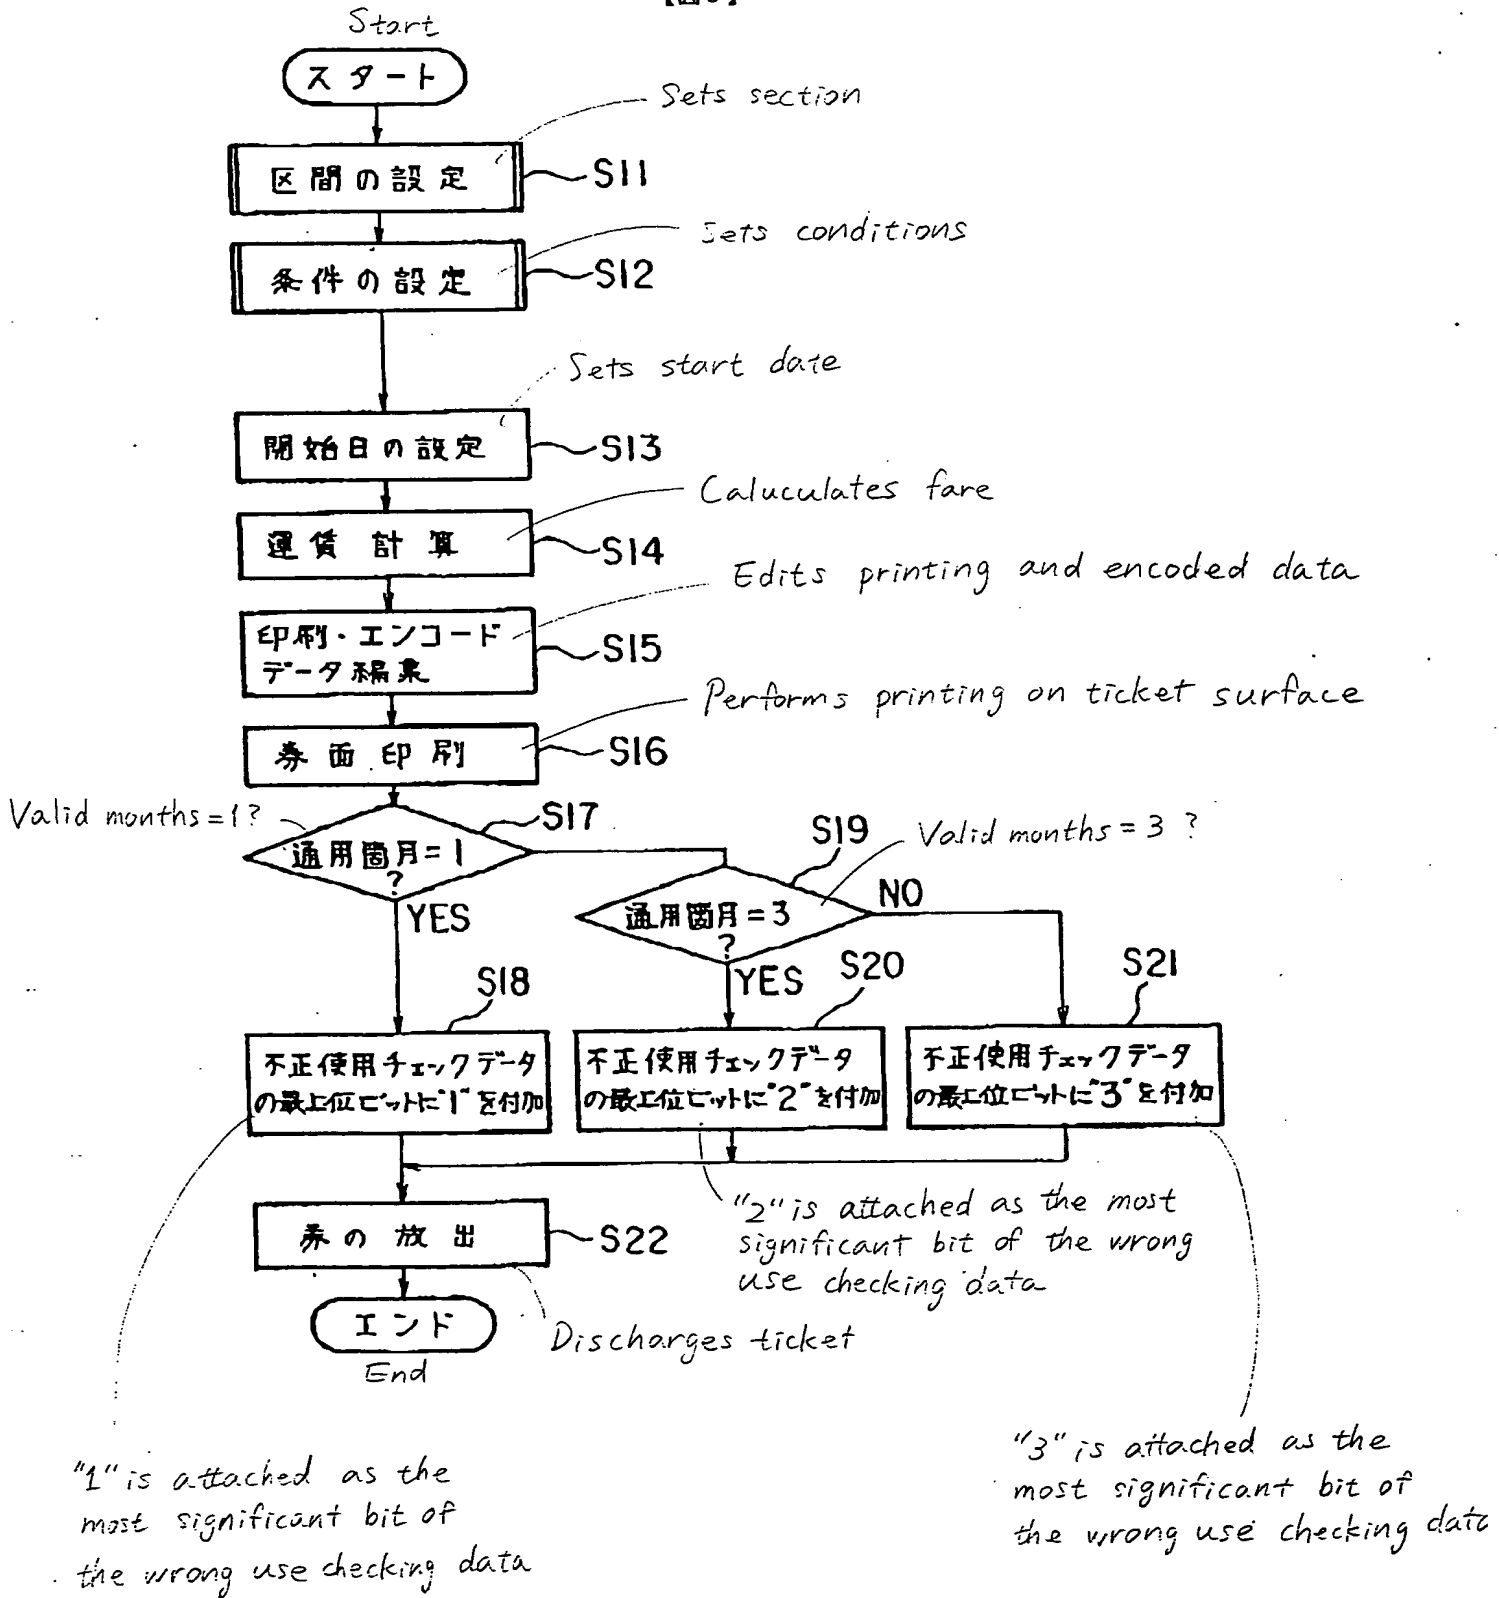 Start
スタート
Sets section
区間の設定
S11
Sets conditions
条件の設定
S12
Sets start date
開始日の設定
S13
Caluculates fare
運賃計算
S14
Edits printing and encoded data
印刷・エンコード
データ編集
S15
Performs printing on ticket surface
券面印刷
S16
Valid months=1?
S17
通用箇月=1
?
YES
S19
Valid months=3 ?
通用箇月=3
?
NO
YES
S18
不正使用チェックデータ
の最上位ビットに"1"を付加
S20
不正使用チェックデータ
の最上位ビットに"2"を付加
S21
不正使用チェックデータ
の最上位ビットに"3"を付加
"2" is attached as the most
significant bit of the wrong
use checking data
券の放出
S22
Discharges ticket
エンド
End
"1" is attached as the
most significant bit of
the wrong use checking data
"3" is attached as the
most significant bit of
the wrong use checking data